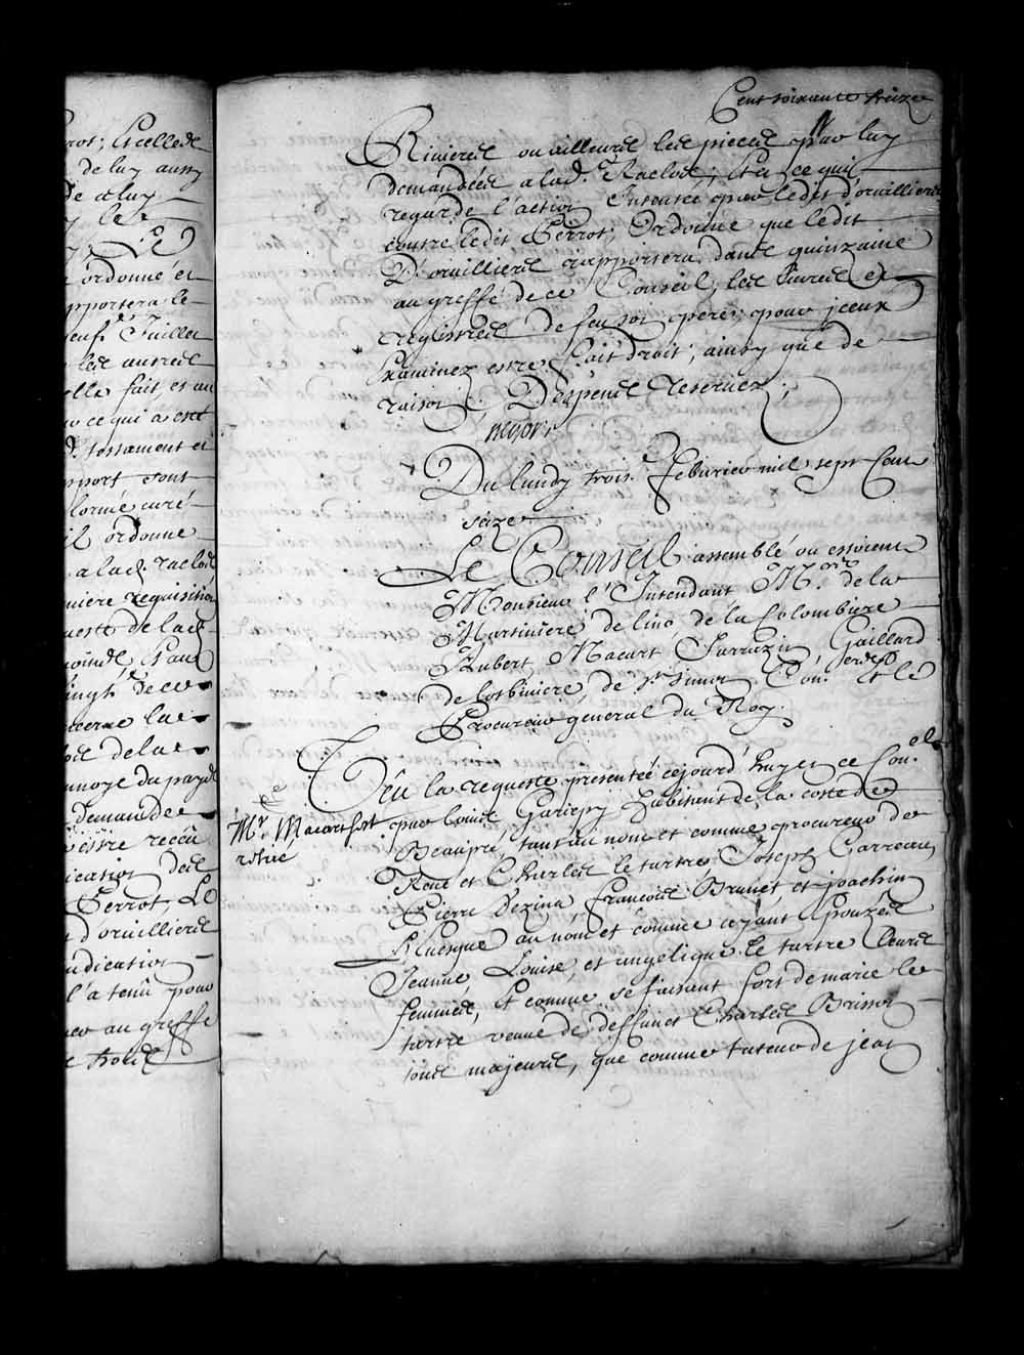 rot; Et celles de
de luy aussy
de et luy
Le
ordonné et
apportera le
neuf.e Juillet
les autres
elle fait, et au
ce qui a esté
d. testament et
apport sont
Lormé curé
il ordonne
a lad. raclos
miere requisition
ueste de lad.
vingt de ce
cerne la
de la
nnoye du pays
demande
estre receu
ication des
Perrot, Le
d'orvillieres
udication
l'a tenû pour
au greffe
trois
Cent soixante treize
Rivieres ou ailleurs les pieces par luy
demandées a lad.e Raclos; Et a ce qui
regarde l'action Intentée par ledit d'orvilliers
contre ledit Perrot; Ordonne que ledit
D'orvillieres rapportera dans quinzaine
au greffe de ce Conseil, les Livres et
registres de feu son pere; pour jceux
Examinez estre fait droit; ainsy que de
raison. Despens reservez;
Du lundy trois.e feburier mil sept Cent
seize
Le Conseil assemblé ou estoient
Monsieur l'Intendant M.rs de la
Martiniere de lino de la Colombiere
Aubert Macart Sarrazin Gaillard
de lotbiniere, de St Simon Con.ers Et le
Procureur general du Roy.
Veu la requeste presentée cejourd'huy en ce Con.el
Mr. Macart fort
par louis Gariepy habitant de la coste de
Beaupré, tant au nom et comme procureur de
René et Charles le tartre, Joseph Carreau,
Pierre Dezina, francois Brunet et joachin
Levesque au nom et comme ayant Epouzés
Jeanne, Louise, et angelique le tartre leurs
femmes, et comme se faisant fort de marie le
tartre veuve de deffunct Charles Brisson
tous majeurs, que comme tuteur de jean